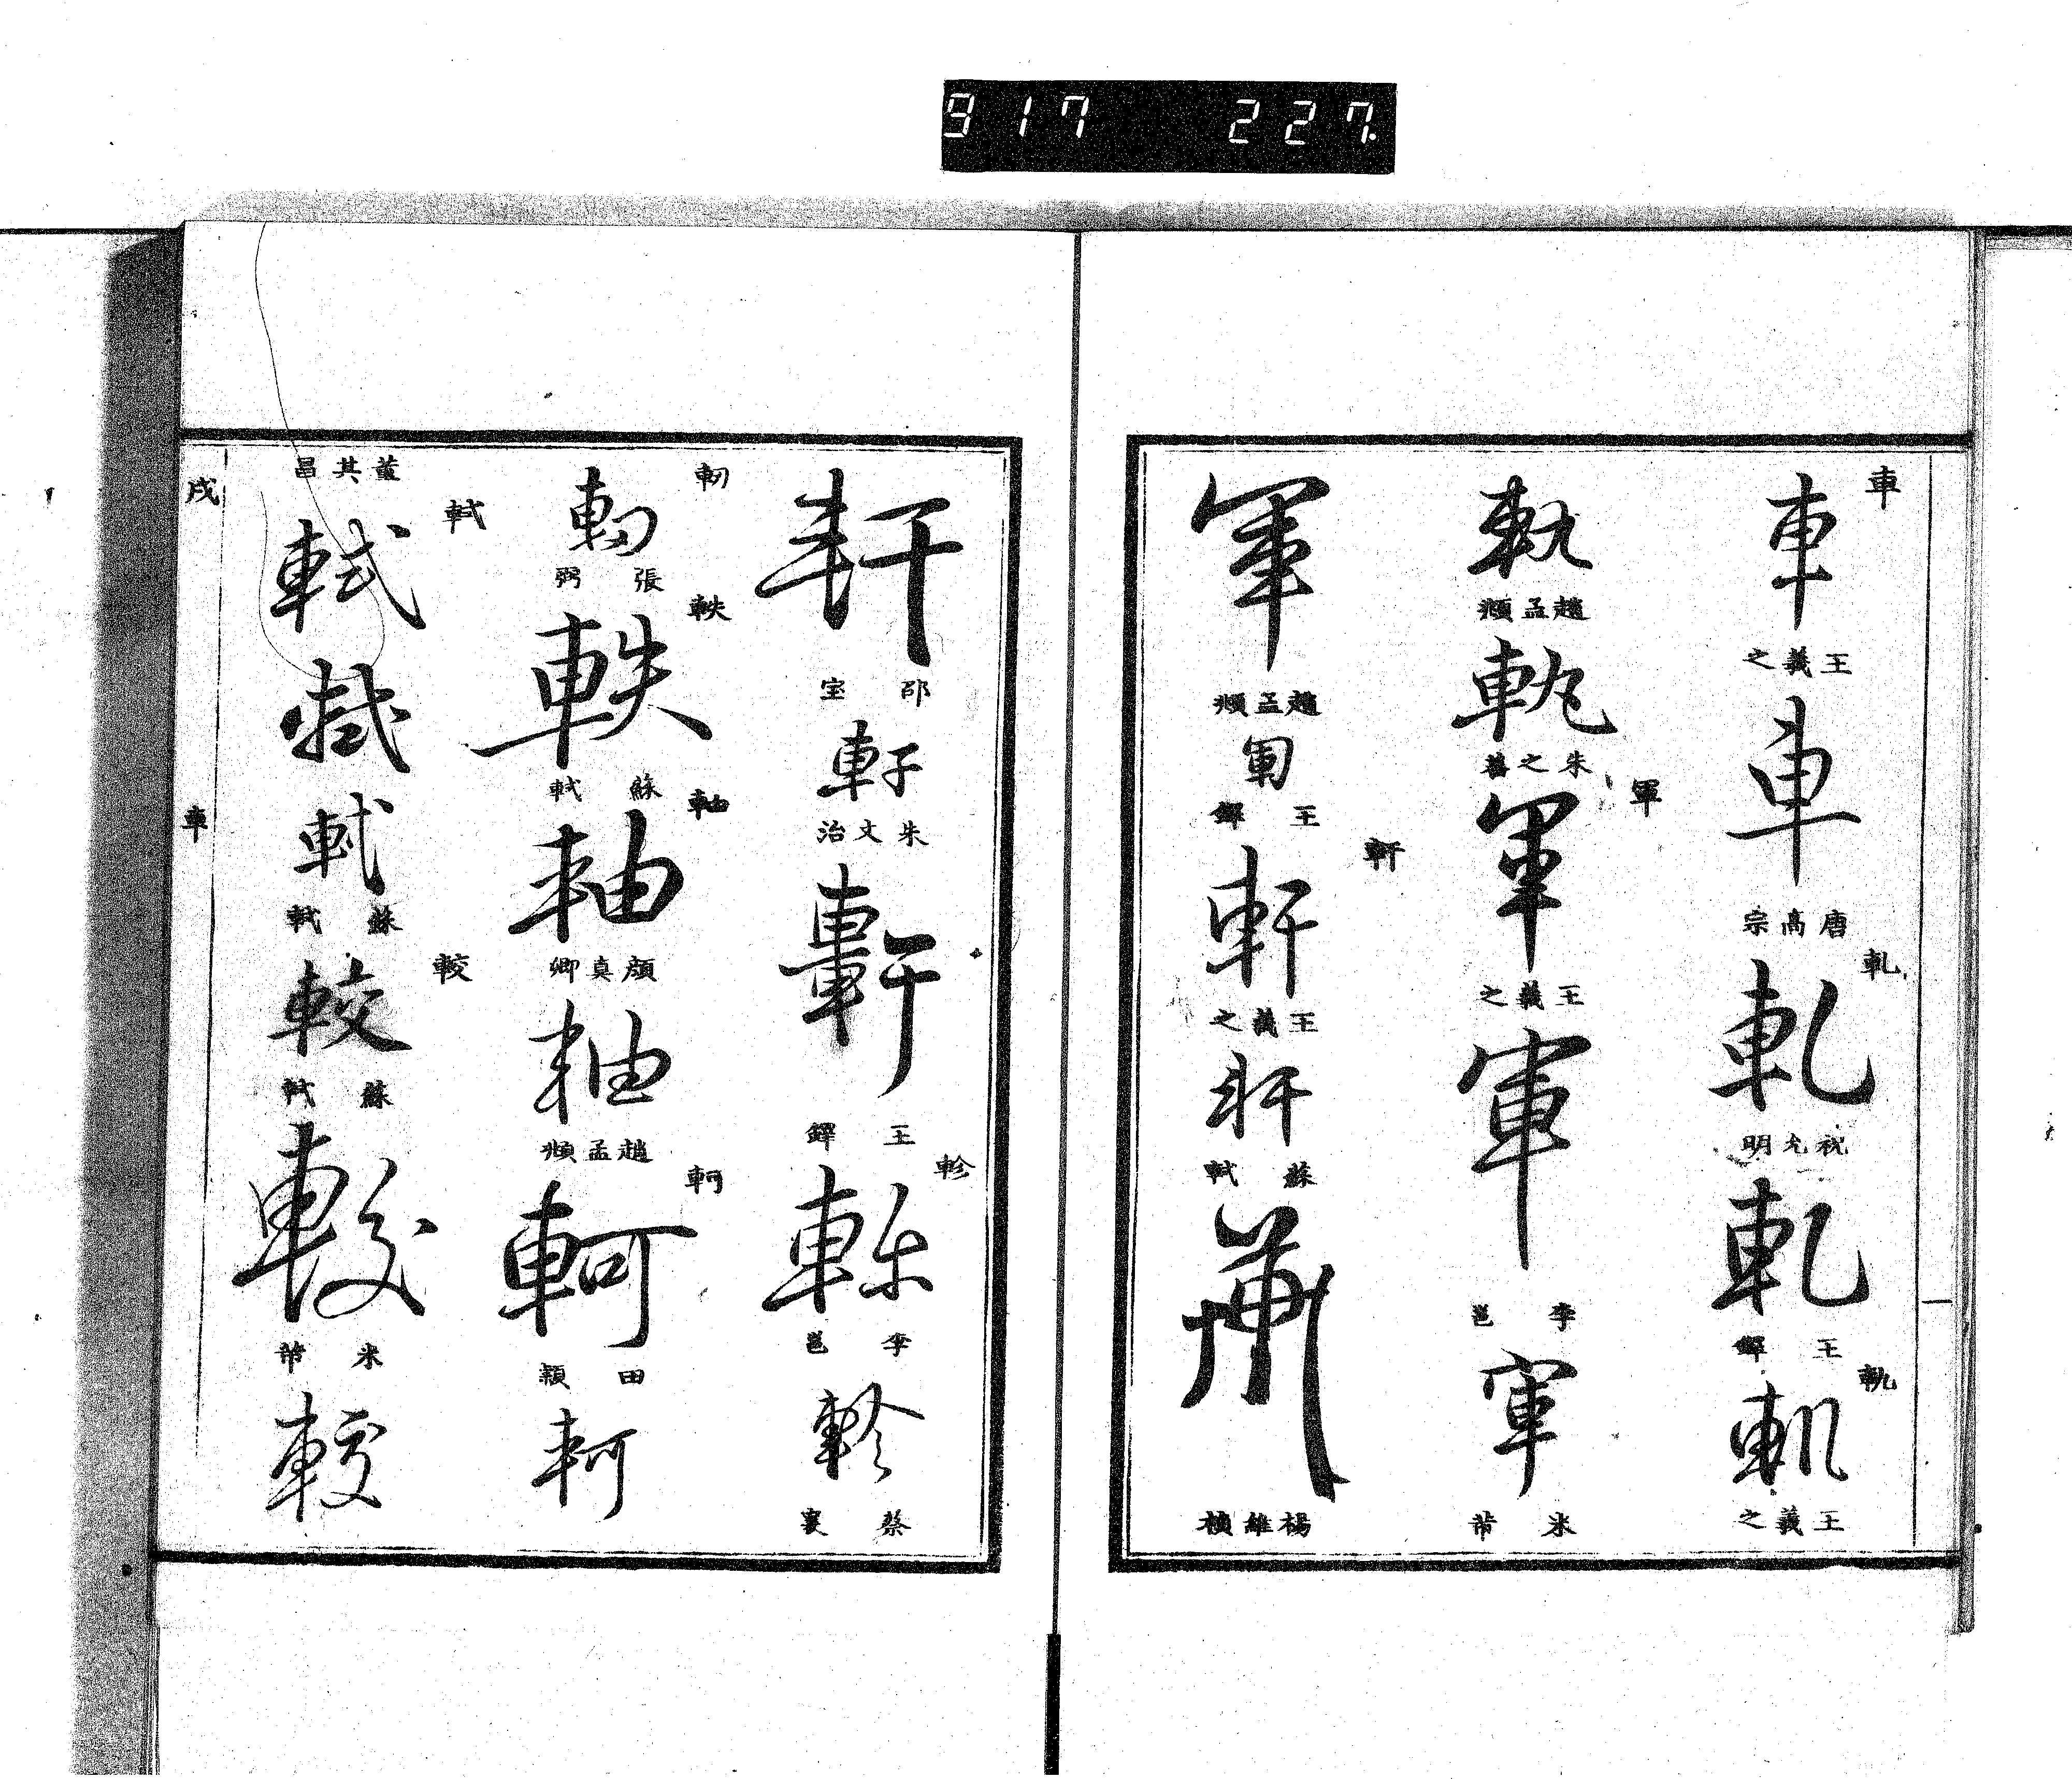 917 227.
車
車
王羲之
車
唐高宗
軋
軋
祝允明
軋
王鐸
軌
軌
王羲之
軌
趙孟頫
軌
朱之蕃
軍
軍
王羲之
軍
李邕
軍
米芾
軍
趙孟頫
軍
王鐸
軒
軒
王羲之
軒
蘇軾
軒
楊維楨
軒
邵宝
軒
朱文治
軒
王鐸
軫
軫
李邕
軫
蔡襄
軔
軔
張弼
軼
軼
蘇軾
軸
軸
顔真卿
軸
趙孟頫
軻
軻
田頴
軻
董其昌
軾
軾
軾
軾
蘇軾
較
較
蘇軾
較
米芾
較
戌
車